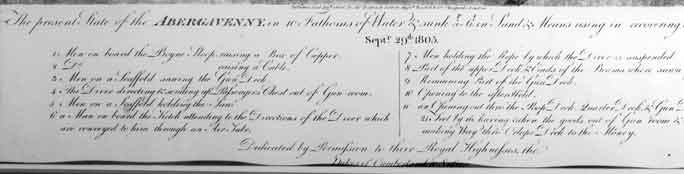 The present State of the ABERGAVENNY, in 10 Fathoms of Water & sunk Sand & Means using in recovering
Sept.r 29th 1805.
1 Men on board the Boyne Sloop raising a Box of Copper.
2 Do. raising a Cable.
3 Men on a Scaffold sawing the Gun Deck
4 The Diver directing & walking up Passengers Chest out of Gun room.
5 Men on a Scaffold holding the Saw
6 a Man on board the Ketch attending to the Directions of the Diver which
are conveyed to him through an Air Tube.
7 Men holding the Rope by which the Diver is suspended
8 Part of the upper Deck & Ends of the Beams where sawn
9 Remaining Part of the Gun Deck
10 Opening to the after Hold.
11 an Opening thro the Poop Deck Quarter Deck & Gun
25 Feet by 18 having taken the goods out of Gun room &
making way thro Deck to the Money.
Dedicated by Permission to their Royal Highnesses, the
Dukes of Cumberland &